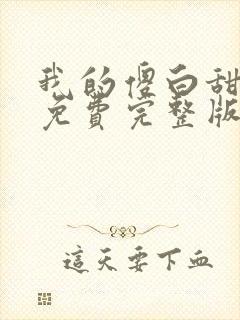 我的傻白甜
免費完整版
這天要下血